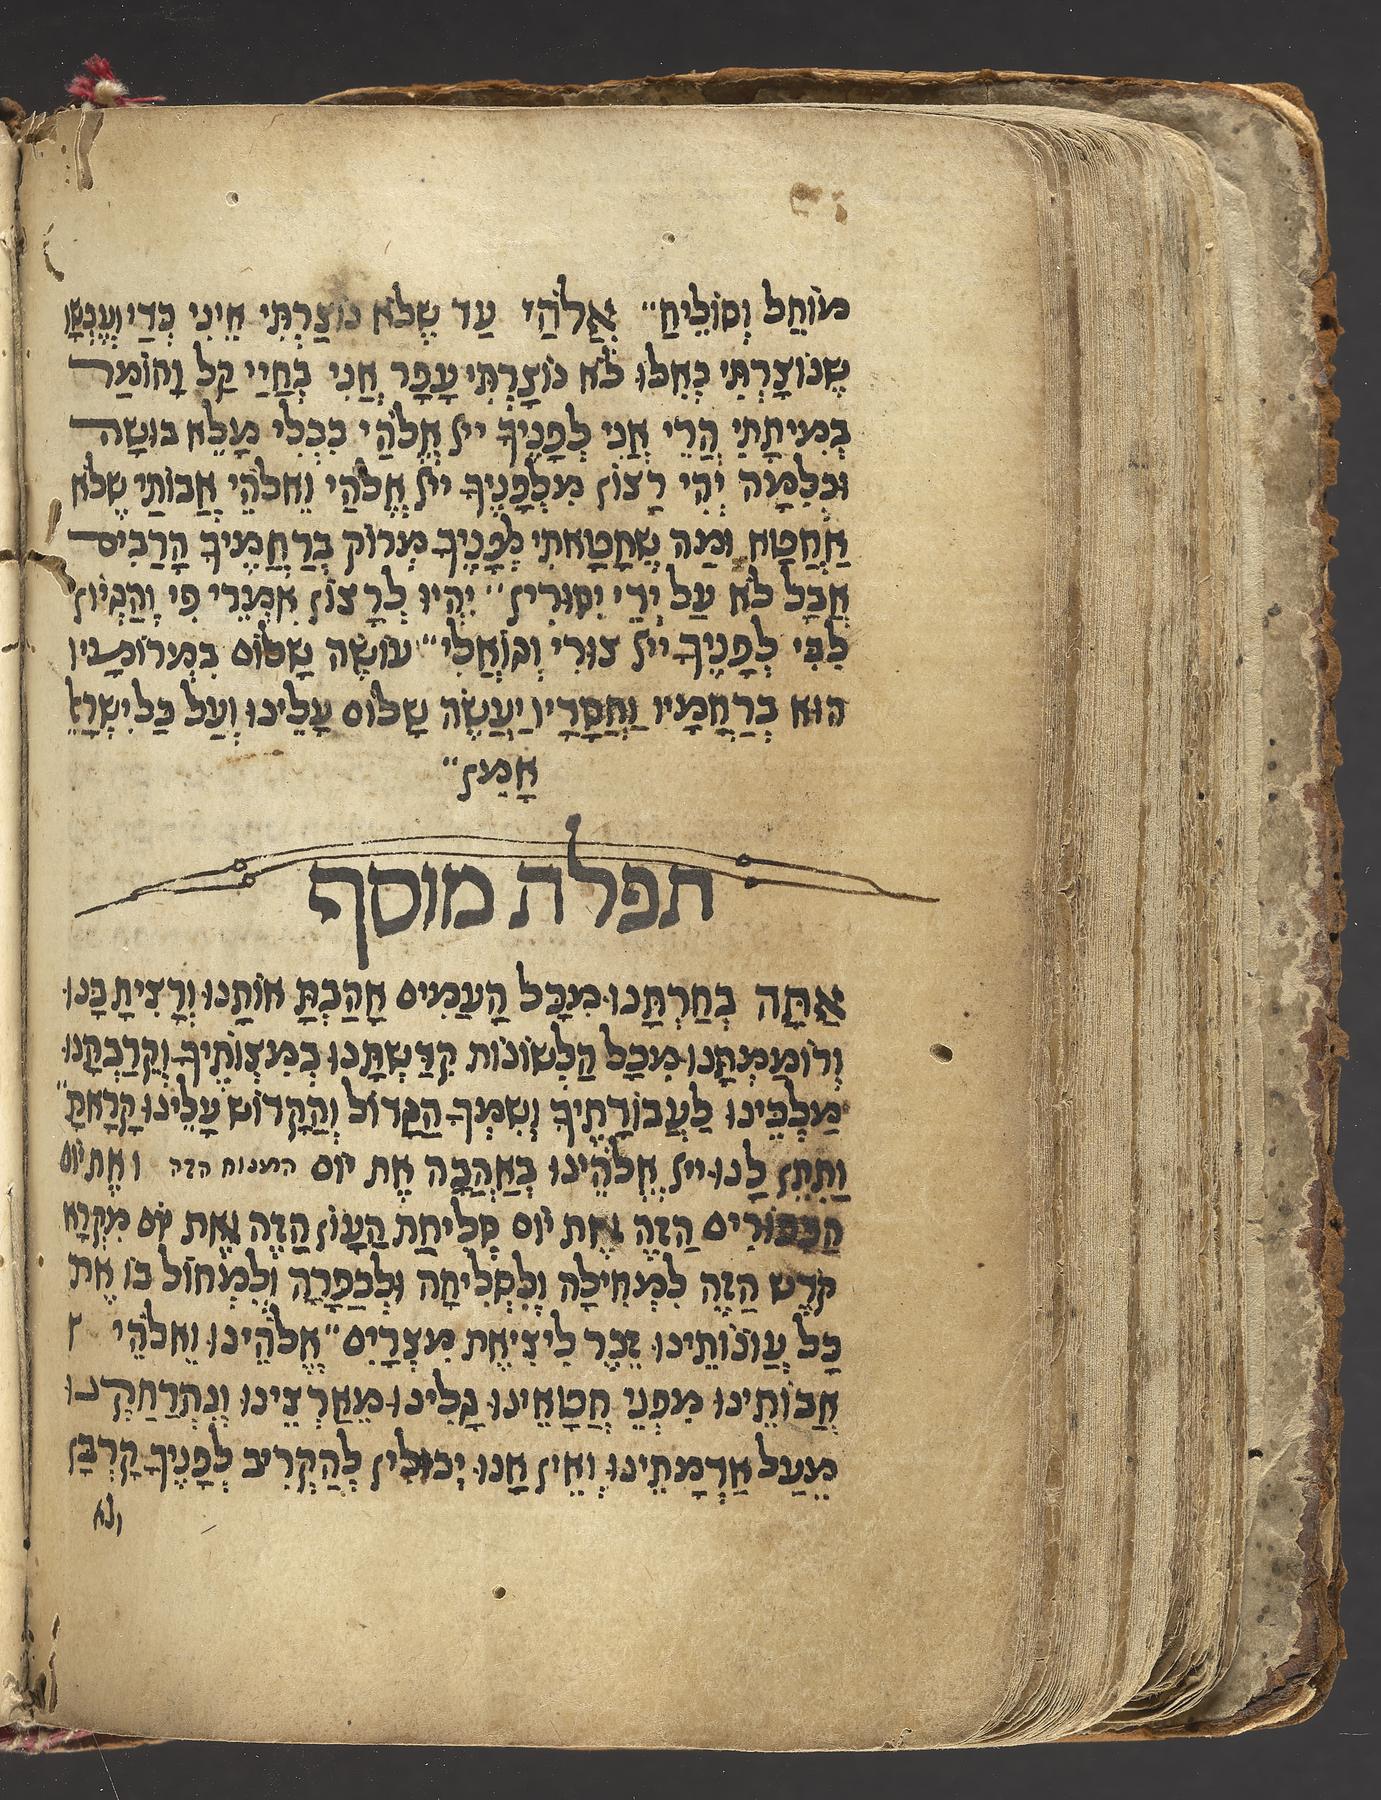 מוֹחֵל וְסוֹלֵיחַ״ אֱלֹהַי עַד שֶׁלֹא נוֹצַרְתִּי אֵינִי כְּדַי וְעַכְשָׁו
שֶׁנּוֹצָרְתִּי כְּאִלּוּ לֹא נוֹצָרְתִּי עָפָר אֲנִי בְּחַיַּי קַל וָחוֹמֶר
בְּמִיתָתִי הֲרֵי אֲנִי לְפָנֶיךָ ייל אֱלֹהַי כִּכְלִי מָלֵא בוּשָׁה
וּכְלִמָּה יְהִי רָצוֹן מִלְּפָנֶיךָ ייל אֱלֹהַי וֵאלֹהֵי אֲבוֹתַי שֶׁלֹּא
אֶחֱטָא וּמַה שֶּׁחָטָאתִי לְפָנֶיךָ מְרוֹק בְּרַחֲמֶיךָ הָרַבִּים
אֲבָל לֹא עַל יְדֵי יִסּוּרִין״ יִהְיוּ לְרָצוֹן אִמְרֵי פִי וְהֶגְיוֹן
לִבִּי לְפָנֶיךָ ייל צוּרִי וְגוֹאֲלִי״ עוֹשֶׂה שָׁלוֹם בִּמְרוֹמָיו
הוּא בְּרַחֲמָיו וַחֲסָדָיו יַעֲשֶׂה שָׁלוֹם עָלֵינוּ וְעַל כַּל יִשְׂרָאֵ
אָמֵן״
תפלת מוסף
אַתָּה בְּחַרְתָּנוּ מִכָּל הָעַמִּים אָהַבְתָּ אוֹתָנוּ וְרָצִיתָ בָּנוּ
וְרוֹמַמְתָּנוּ מִכָּל הַלְּשׁוֹנוֹת קִדַּשְׁתָּנוּ בְּמִצְוֹתֶיךָ וְקֵרַבְתָּנוּ
מַלְכֵּינוּ לַעֲבוֹדָתֶיךָ וְשִׁמְךָ הַגָּדוֹל וְהַקָּדוֹשׁ עָלֵינוּ קָרָאתָ״
וַתִּתֵּן לָנוּ ייל אֱלֹהֵינוּ בְּאַהֲבָה אֶת יוֹם המנוח הזה ואֶת יוֹם
הַכִּפּוּרִים הַזֶּה אֶת יוֹם סְלִיחַת הֶעָוֹן הַזֶּה אֶת יוֹם מִקְרָא
קֹדֶשׁ הַזֶּה לִמְחִילָה וְלִסְלִיחָה וּלְכַפָּרָה וְלִמְחוֹל בּוֹ אֶת
כָּל עֲוֹנוֹתֵינוּ זֵכֶר לִיצִיאַת מִצְרָיִם״ אֱלֹהֵינוּ וֵאלֹהֵי
אֲבוֹתֵינוּ מִפְּנֵי חֲטָאֵינוּ גָּלִינוּ מֵאַרְצֵינוּ וְנִתְרַחַקְנוּ
מֵעַל אַדְמָתֵינוּ וְאֵין אָנוּ יְכוּלִין לְהַקְרִיב לְפָנֶיךָ קָרְבָּן
ולא